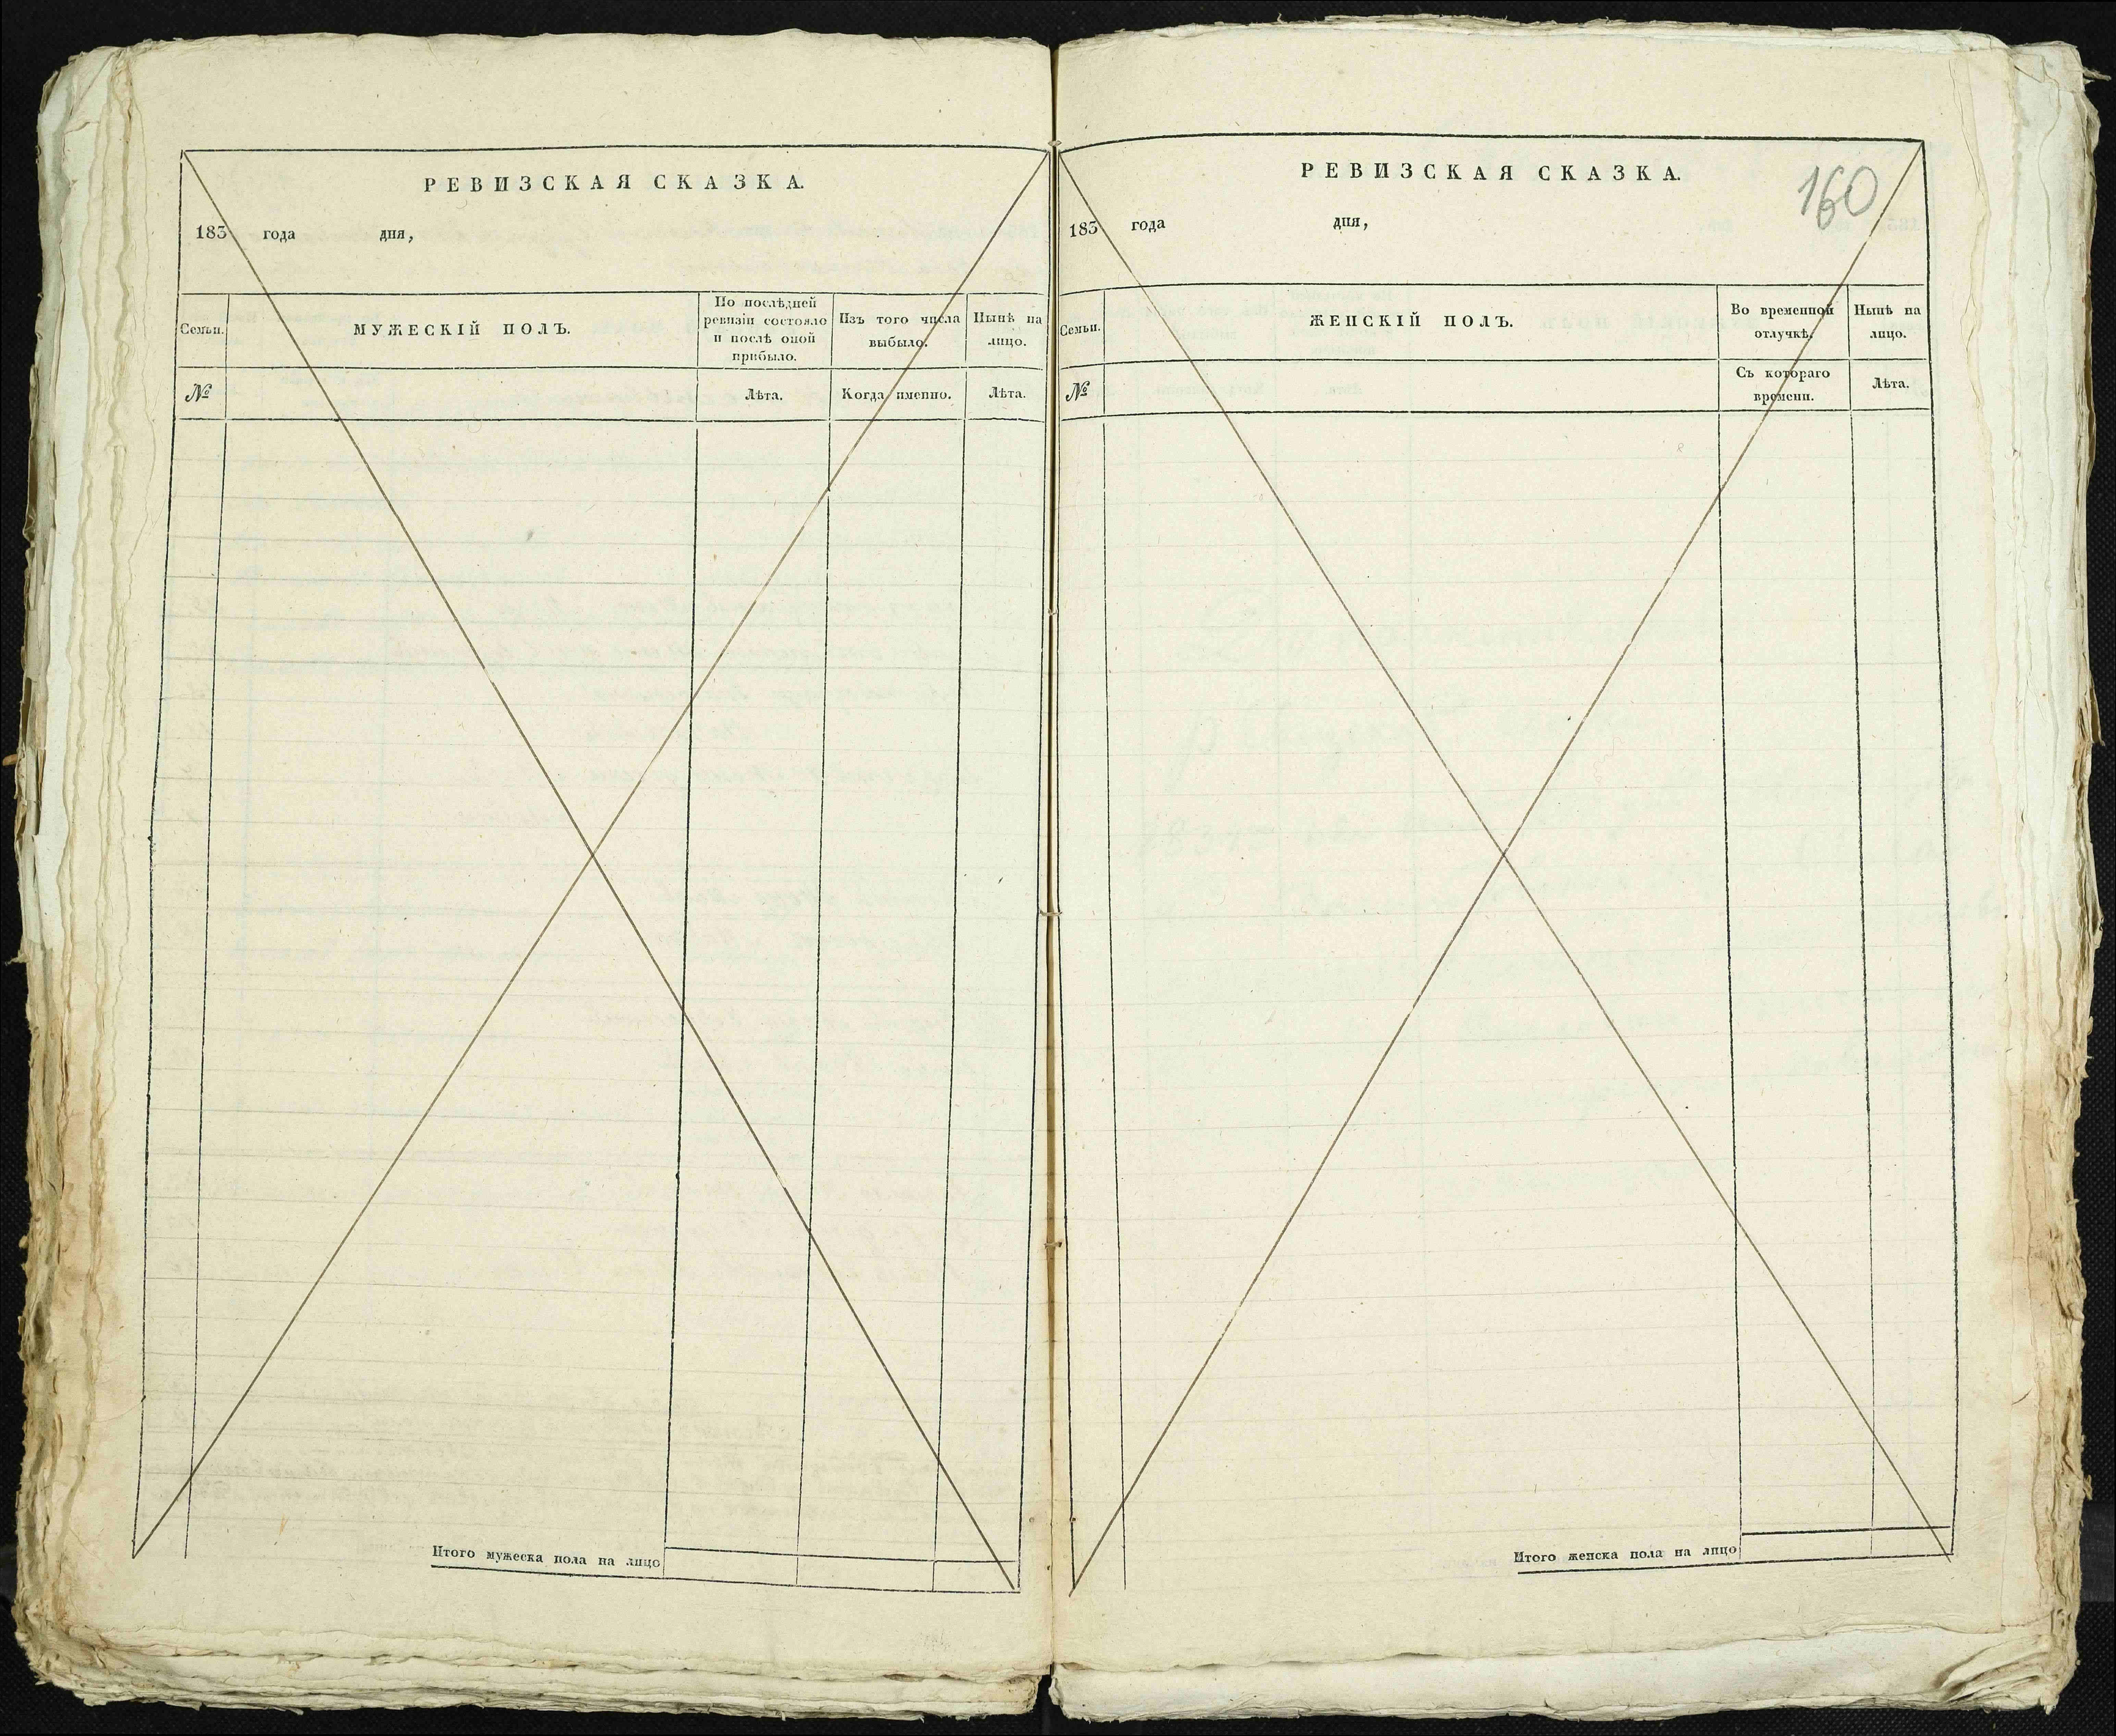 РЕВИЗСКАЯ СКАЗКА.
183 года дня,
Семьи.
МУЖЕСКІЙ ПОЛЪ.
По послѣдней
ревизіи состояло
и послѣ оной
прибыло.
Изъ того числа
выбыло.
Нынѣ на
лицо.
№
Лѣта.
Когда именно.
Лѣта.
Итого мужеска пола на лицо
РЕВИЗСКАЯ СКАЗКА.
160
183 года дня,
Семьи.
ЖЕНСКІЙ ПОЛЪ.
Во временной
отлучкѣ.
Нынѣ на
лицо.
№
Съ котораго
времени.
Лѣта.
Итого женска пола на лицо